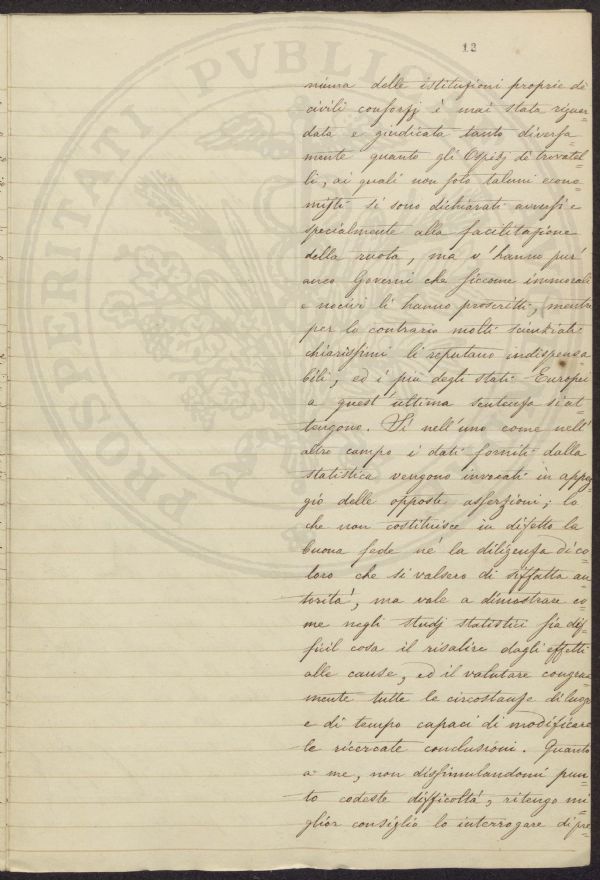 12
niuna delle istituzioni proprie di
civili consorzj è mai stata riguar-
data e giudicata tanto diversa-
mente quanto gli Ospizj di trovatel-
li, ai quali non solo taluni econo-
misti si sono dichiarati avversi e
specialmente alla facilitazione
della ruota, ma v'hanno pur'
anco Governi che siccome immorali
e nocivi li hanno proscritti, mentre
per lo contrario molti scienziati
chiarissimi li reputano indispensa
bili, ed i più degli stati Europei
a quest'ultima sentenza si at-
tengono. Sì nell'uno come nell'
altro campo i dati forniti dalla
statistica vengono invocati in appog-
gio delle opposte asserzioni; lo
che non costituisce in difetto la
buona fede nè la diligenza di co-
loro che si valsero di siffatta au-
torità, ma vale a dimostrare co-
me negli studj statistici sia dif-
ficil cosa il risalire dagli effetti
alle cause, ed il valutare congrua-
mente tutte le circostanze di luogo
e di tempo capaci di modificare
le ricercate conclusioni. Quanto
a me, non dissimulandomi pun-
to codeste difficoltà, ritengo mi-
glior consiglio lo interrogare di pre
PROSPERITATI PVBLICAE